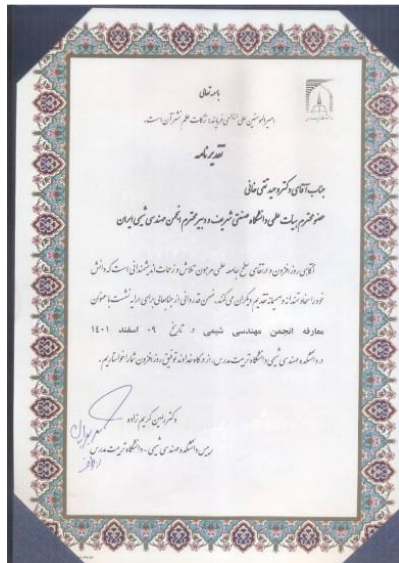 باسمه تعالی
امیرالمومنین علی علیه‌السلام می‌فرمایند: زکات علم نشر آن است.
تقدیرنامه
جناب آقای دکتر وحید تقی خانی
عضو محترم هیات علمی دانشگاه صنعتی شریف و دبیر محترم انجمن مهندسی شیمی ایران
آگاهی روزافزون و ارتقای سطح جامعه علمی مرهون تلاش و زحمات اندیشمندانی است که دانش
خود را سخاوتمندانه و صمیمانه تقدیم دیگران می‌کنند. ضمن قدردانی از جنابعالی برای ارایه نشست با عنوان
معارفه انجمن مهندسی شیمی در تاریخ ۰۹ اسفند ۱۴۰۱
در دانشکده مهندسی شیمی دانشگاه تربیت مدرس، از درگاه خداوند توفیق روزافزون شما را خواستاریم.
دکتر رامین کریم زاده
رییس دانشکده مهندسی شیمی - دانشگاه تربیت مدرس